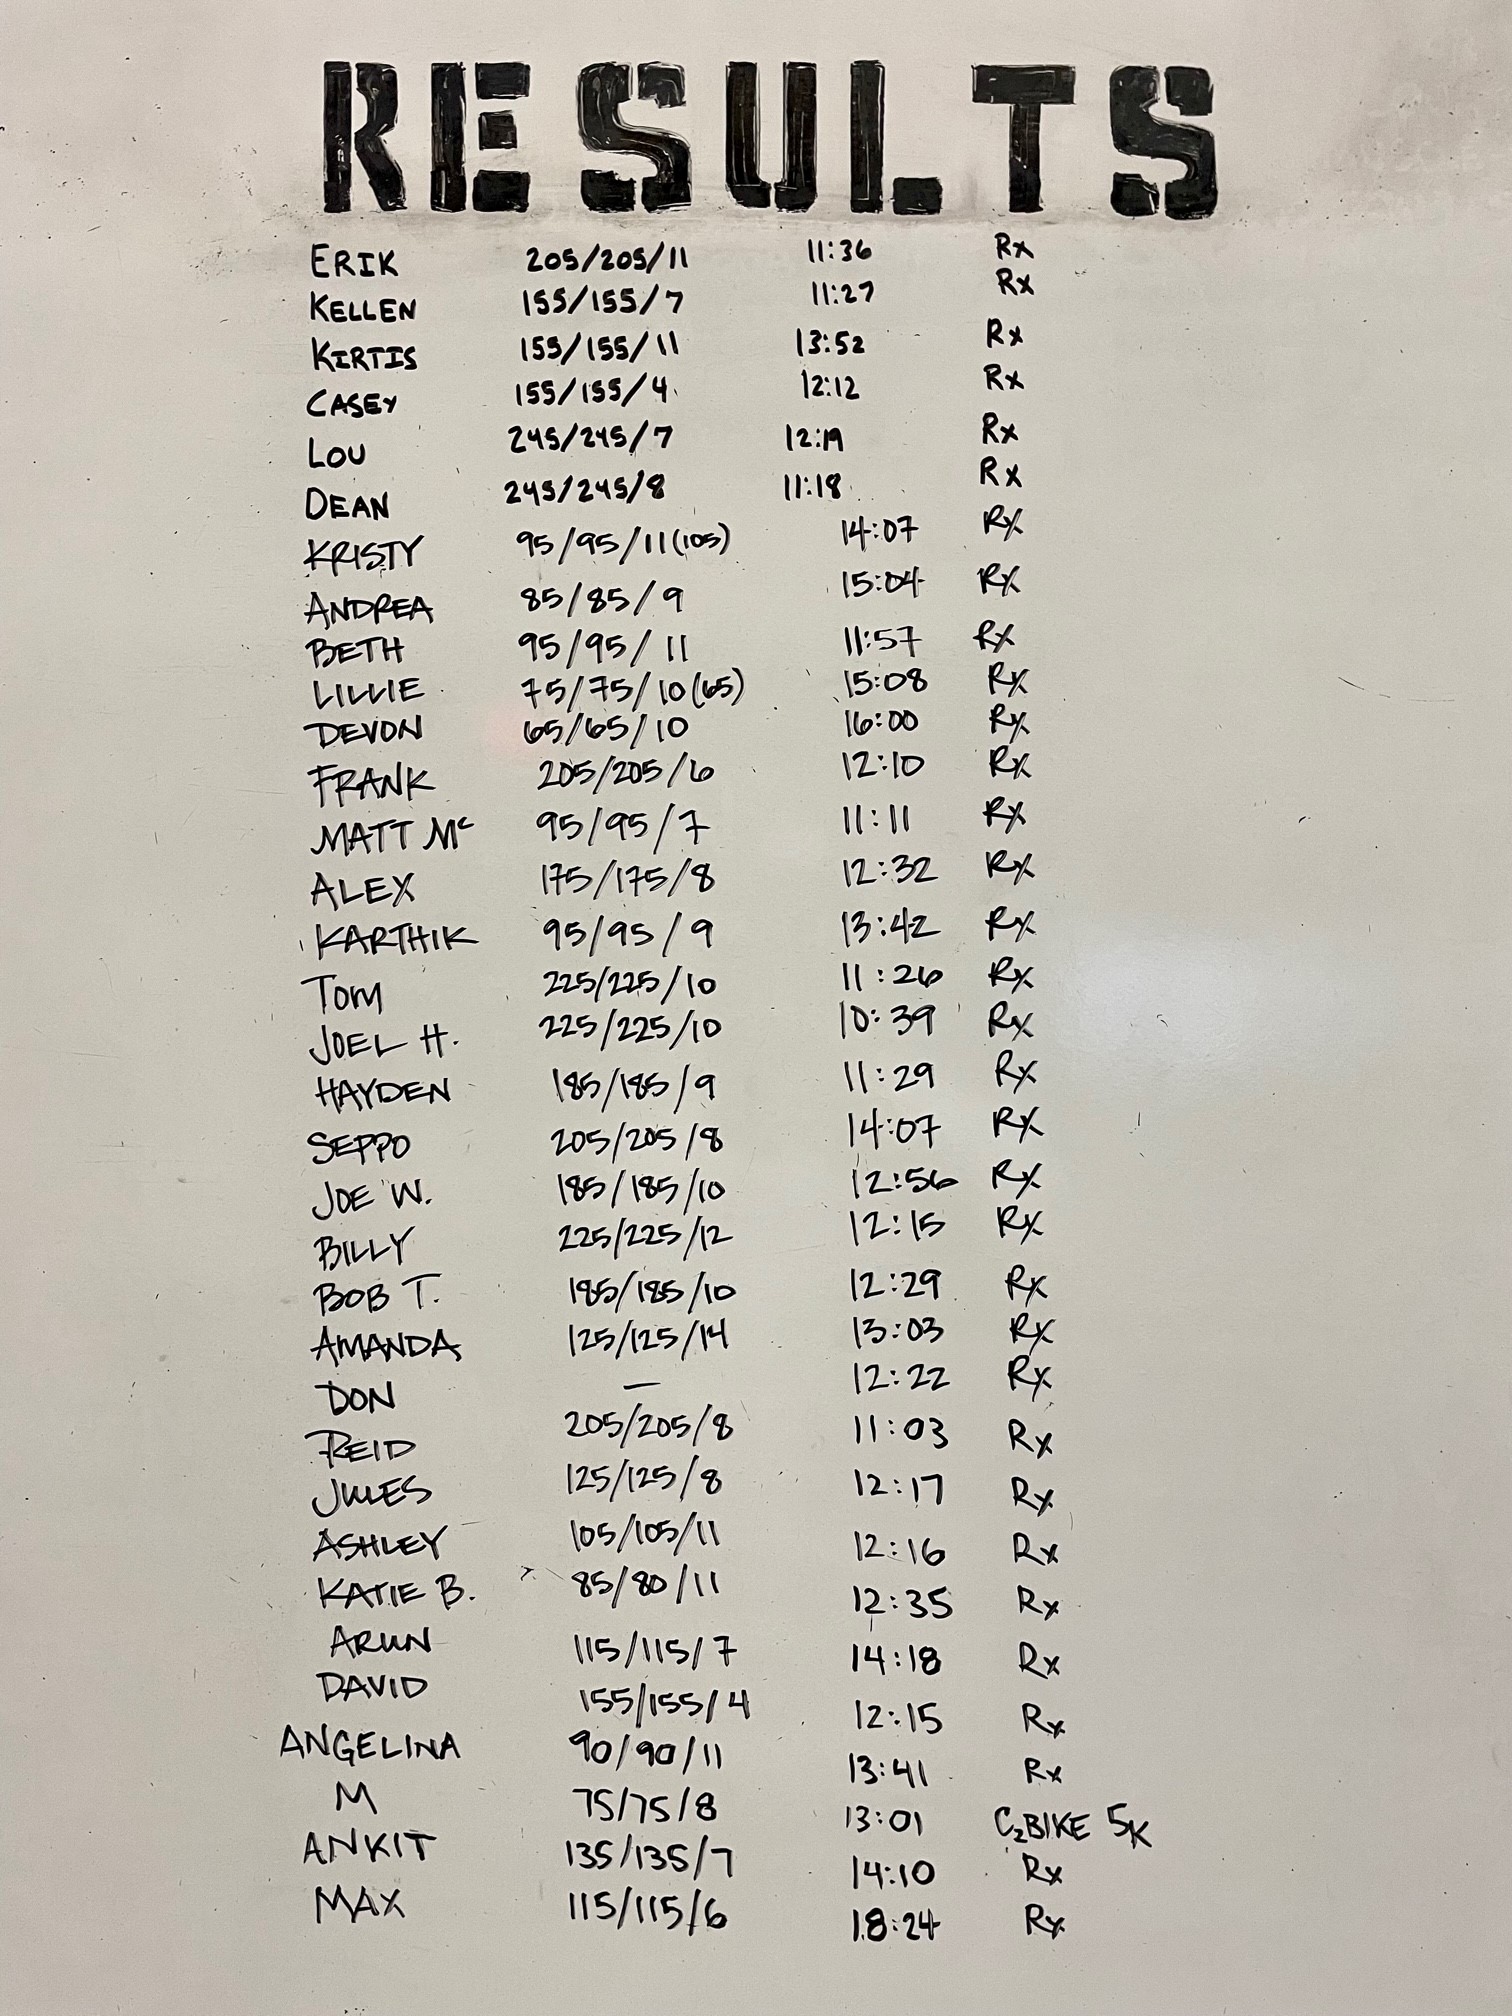 RESULTS
ERIK 205/205/11 11:36 Rx
KELLEN 155/155/7 11:27 Rx
KIRTIS 155/155/11 13:52 Rx
CASEY 155/155/4 12:12 Rx
LOU 245/245/7 12:19 Rx
DEAN 245/245/8 11:18 Rx
KRISTY 95/95/11(105) 14:07 Rx
ANDREA 85/85/9 15:04 Rx
BETH 95/95/11 11:57 Rx
LILLIE 75/75/10(65) 15:08 Rx
DEVON 65/65/10 16:00 Rx
FRANK 205/205/6 12:10 Rx
MATT Mc 95/95/7 11:11 Rx
ALEX 175/175/8 12:32 Rx
KARTHIK 95/95/9 13:42 Rx
TOM 225/225/10 11:26 Rx
JOEL H. 225/225/10 10:39 Rx
HAYDEN 185/185/9 11:29 Rx
SEPPO 205/205/8 14:07 Rx
JOE W. 185/185/10 12:56 Rx
BILLY 225/225/12 12:15 Rx
BOB T. 185/185/10 12:29 Rx
AMANDA 125/125/14 13:03 Rx
DON — 12:22 Rx
REID 205/205/8 11:03 Rx
JULES 125/125/8 12:17 Rx
ASHLEY 105/105/11 12:16 Rx
KATIE B. 85/80/11 12:35 Rx
ARUN 115/115/7 14:18 Rx
DAVID 155/155/4 12:15 Rx
ANGELINA 90/90/11 13:41 Rx
M 75/75/8 13:01 C2BIKE 5K
ANKIT 135/135/7 14:10 Rx
MAX 115/115/6 18:24 Rx